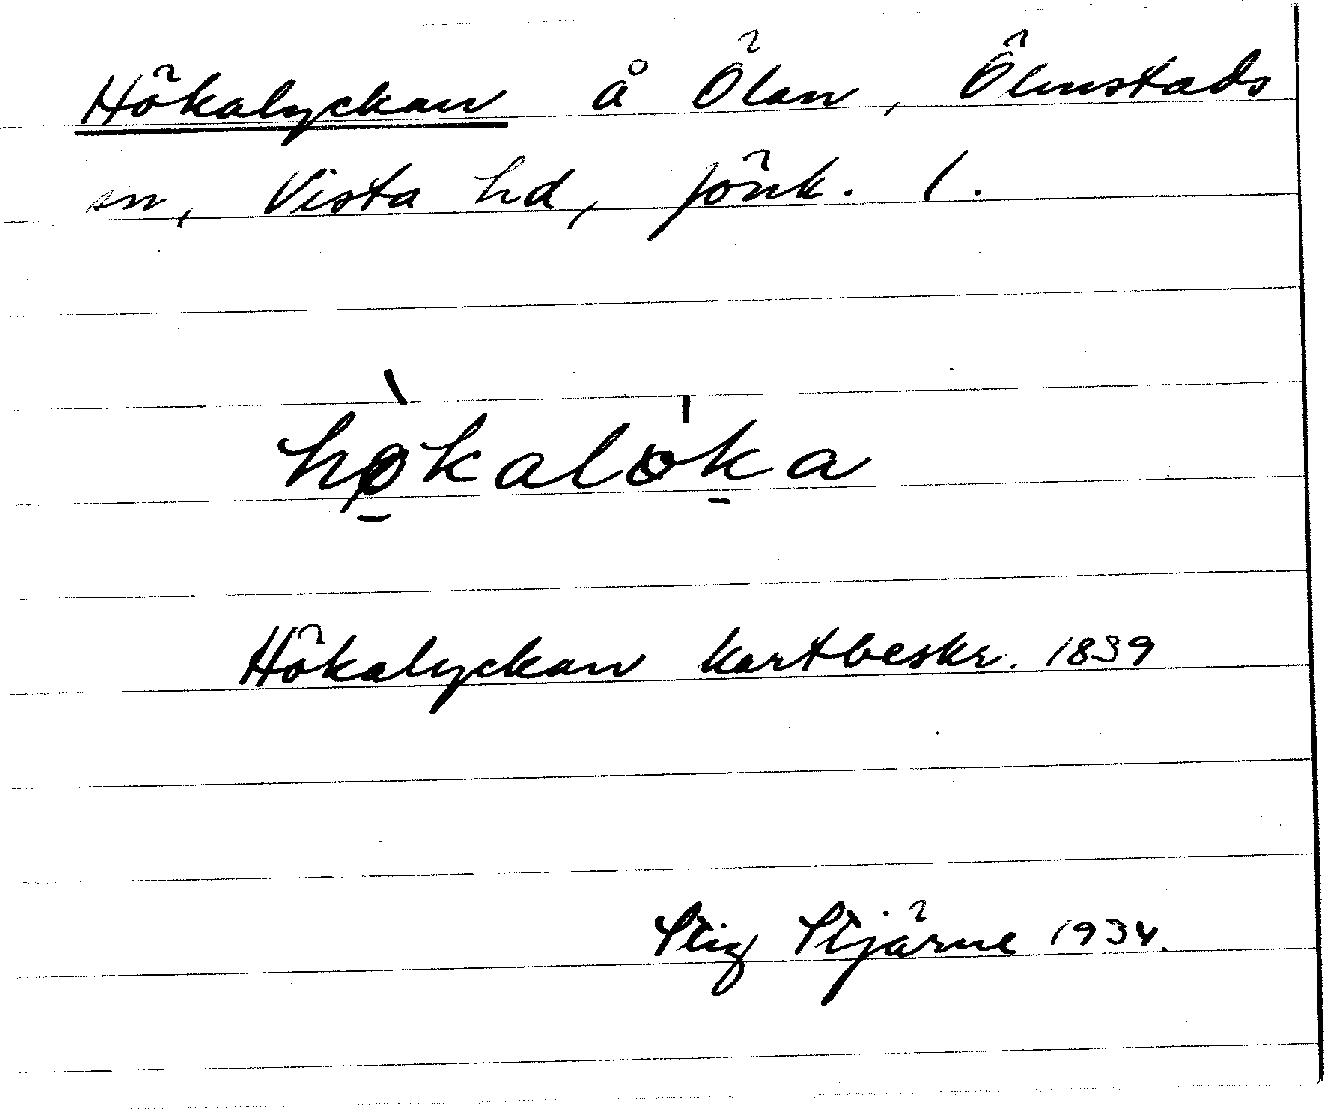 Hökalyckan å Ölan, Ölmstads
sn, Vista hd, Jönk. l.
hø̀kalöka
Hökalyckan kartbeskr. 1839
Stig Stjärne 1934.